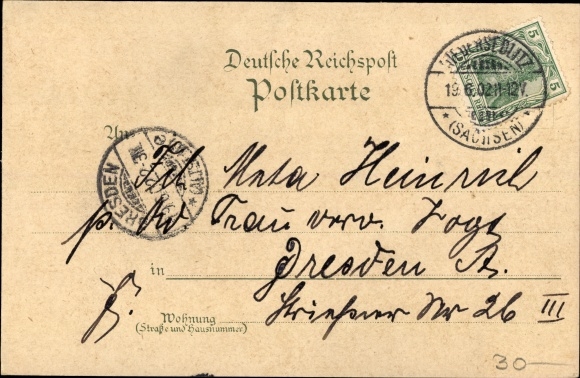 Deutsche Reichspost
Postkarte
NIEDERSEDLITZ
19.6.02 11-12V.
* (SACHSEN) *
5
5
An
DRESDEN
ALTST.
Frl. Meta Heinrich
p. Adr. Frau verw. Vogt
in Dresden A.
Wohnung
(Straße und Hausnummer)
Striesner Nr 26 III
30—